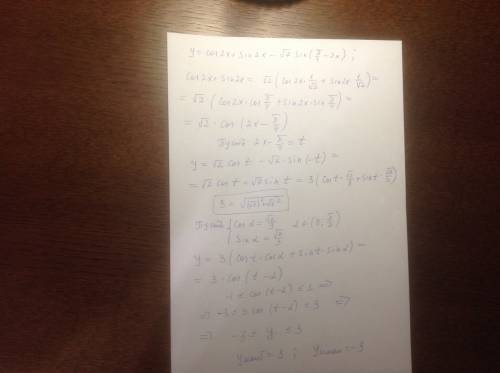 y = cos2x + sin2x - √7 sin(π/4 - 2x);
cos2x + sin2x = √2 (cos2x · 1/√2 + sin2x · 1/√2) =
= √2 (cos2x · cos π/4 + sin2x · sin π/4) =
= √2 · cos (2x - π/4)
Пусть 2x - π/4 = t
y = √2 cos t - √7 · sin(-t) =
= √2 cos t + √7 sin t = 3 (cos t · √2/3 + sin t · √7/3)
3 = √((√2)² + (√7)²)
Пусть { cos α = √2/3
sin α = √7/3 α ∈ (0; π/2)
y = 3 (cos t · cos α + sin t · sin α) =
= 3 · cos (t - α)
-1 ≤ cos (t - α) ≤ 1 ⇒
⇒ -3 ≤ 3 cos (t - α) ≤ 3 ⇒
⇒ -3 ≤ y ≤ 3
yнаиб = 3 ; yнаим = -3